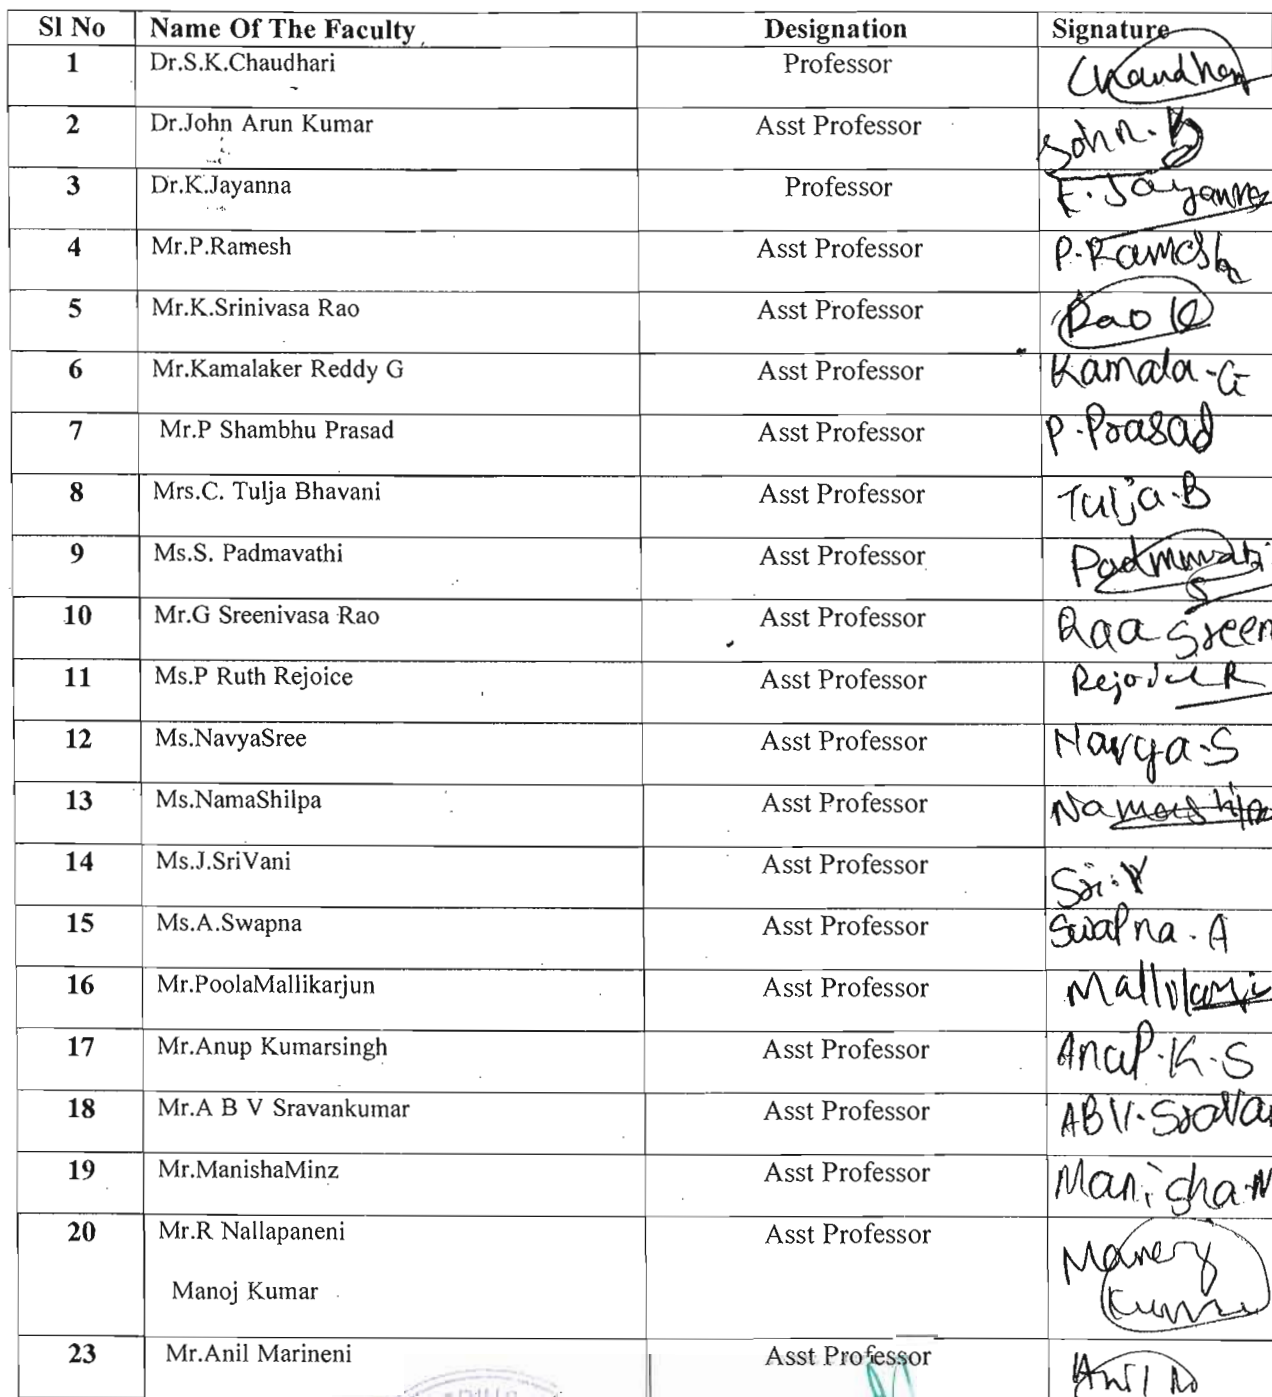 Sl No Name Of The Faculty Designation Signature
1 Dr.S.K.Chaudhari Professor Chaudhary
2 Dr.John Arun Kumar Asst Professor John.
3 Dr.K.Jayanna Professor K.Jayanna
4 Mr.P.Ramesh Asst Professor P.Ramesh
5 Mr.K.Srinivasa Rao Asst Professor Rao K
6 Mr.Kamalaker Reddy G Asst Professor Kamala.G
7 Mr.P Shambhu Prasad Asst Professor P.Prasad
8 Mrs.C. Tulja Bhavani Asst Professor Tulja.B
9 Ms.S. Padmavathi Asst Professor S
10 Mr.G Sreenivasa Rao Asst Professor Sreen
11 Ms.P Ruth Rejoice Asst Professor R
12 Ms.NavyaSree Asst Professor Navya.S
13 Ms.NamaShilpa Asst Professor
14 Ms.J.SriVani Asst Professor Sri.V
15 Ms.A.Swapna Asst Professor Swapna.A
16 Mr.PoolaMallikarjun Asst Professor
17 Mr.Anup Kumarsingh Asst Professor Anup.K.S
18 Mr.A B V Sravankumar Asst Professor ABV.Srava
19 Mr.ManishaMinz Asst Professor Manisha.M
20 Mr.R Nallapaneni Asst Professor
Manoj Kumar Kumar
23 Mr.Anil Marineni Asst Professor Anil M